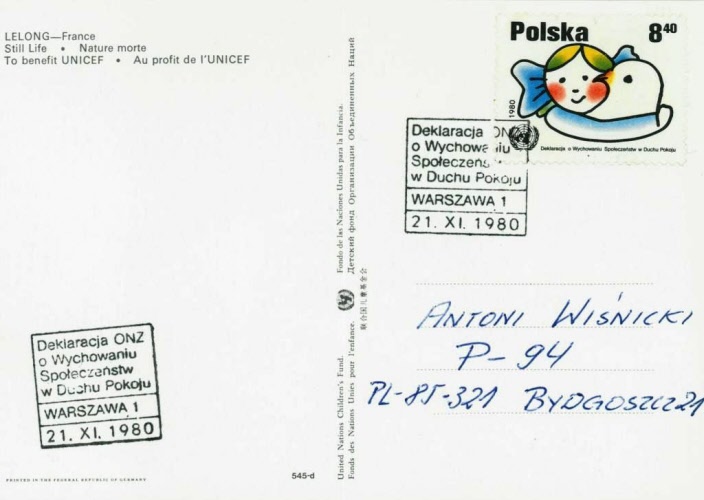 LELONG—France
Still Life • Nature morte
To benefit UNICEF • Au profit de l'UNICEF
Polska 8⁴⁰
1980
Deklaracja o Wychowaniu Społeczeństw w Duchu Pokoju
Deklaracja ONZ
o Wychowaniu
Społeczeństw
w Duchu Pokoju
WARSZAWA 1
21. XI. 1980
United Nations Children's Fund. Fondo de las Naciones Unidas para la Infancia.
Fonds des Nations Unies pour l'enfance. Детский фонд Организации Объединенных Наций
联合国儿童基金会
ANTONI WIŚNICKI
P-94
PL-85-321 BYDGOSZCZ 21
Deklaracja ONZ
o Wychowaniu
Społeczeństw
w Duchu Pokoju
WARSZAWA 1
21. XI. 1980
PRINTED IN THE FEDERAL REPUBLIC OF GERMANY
545-d